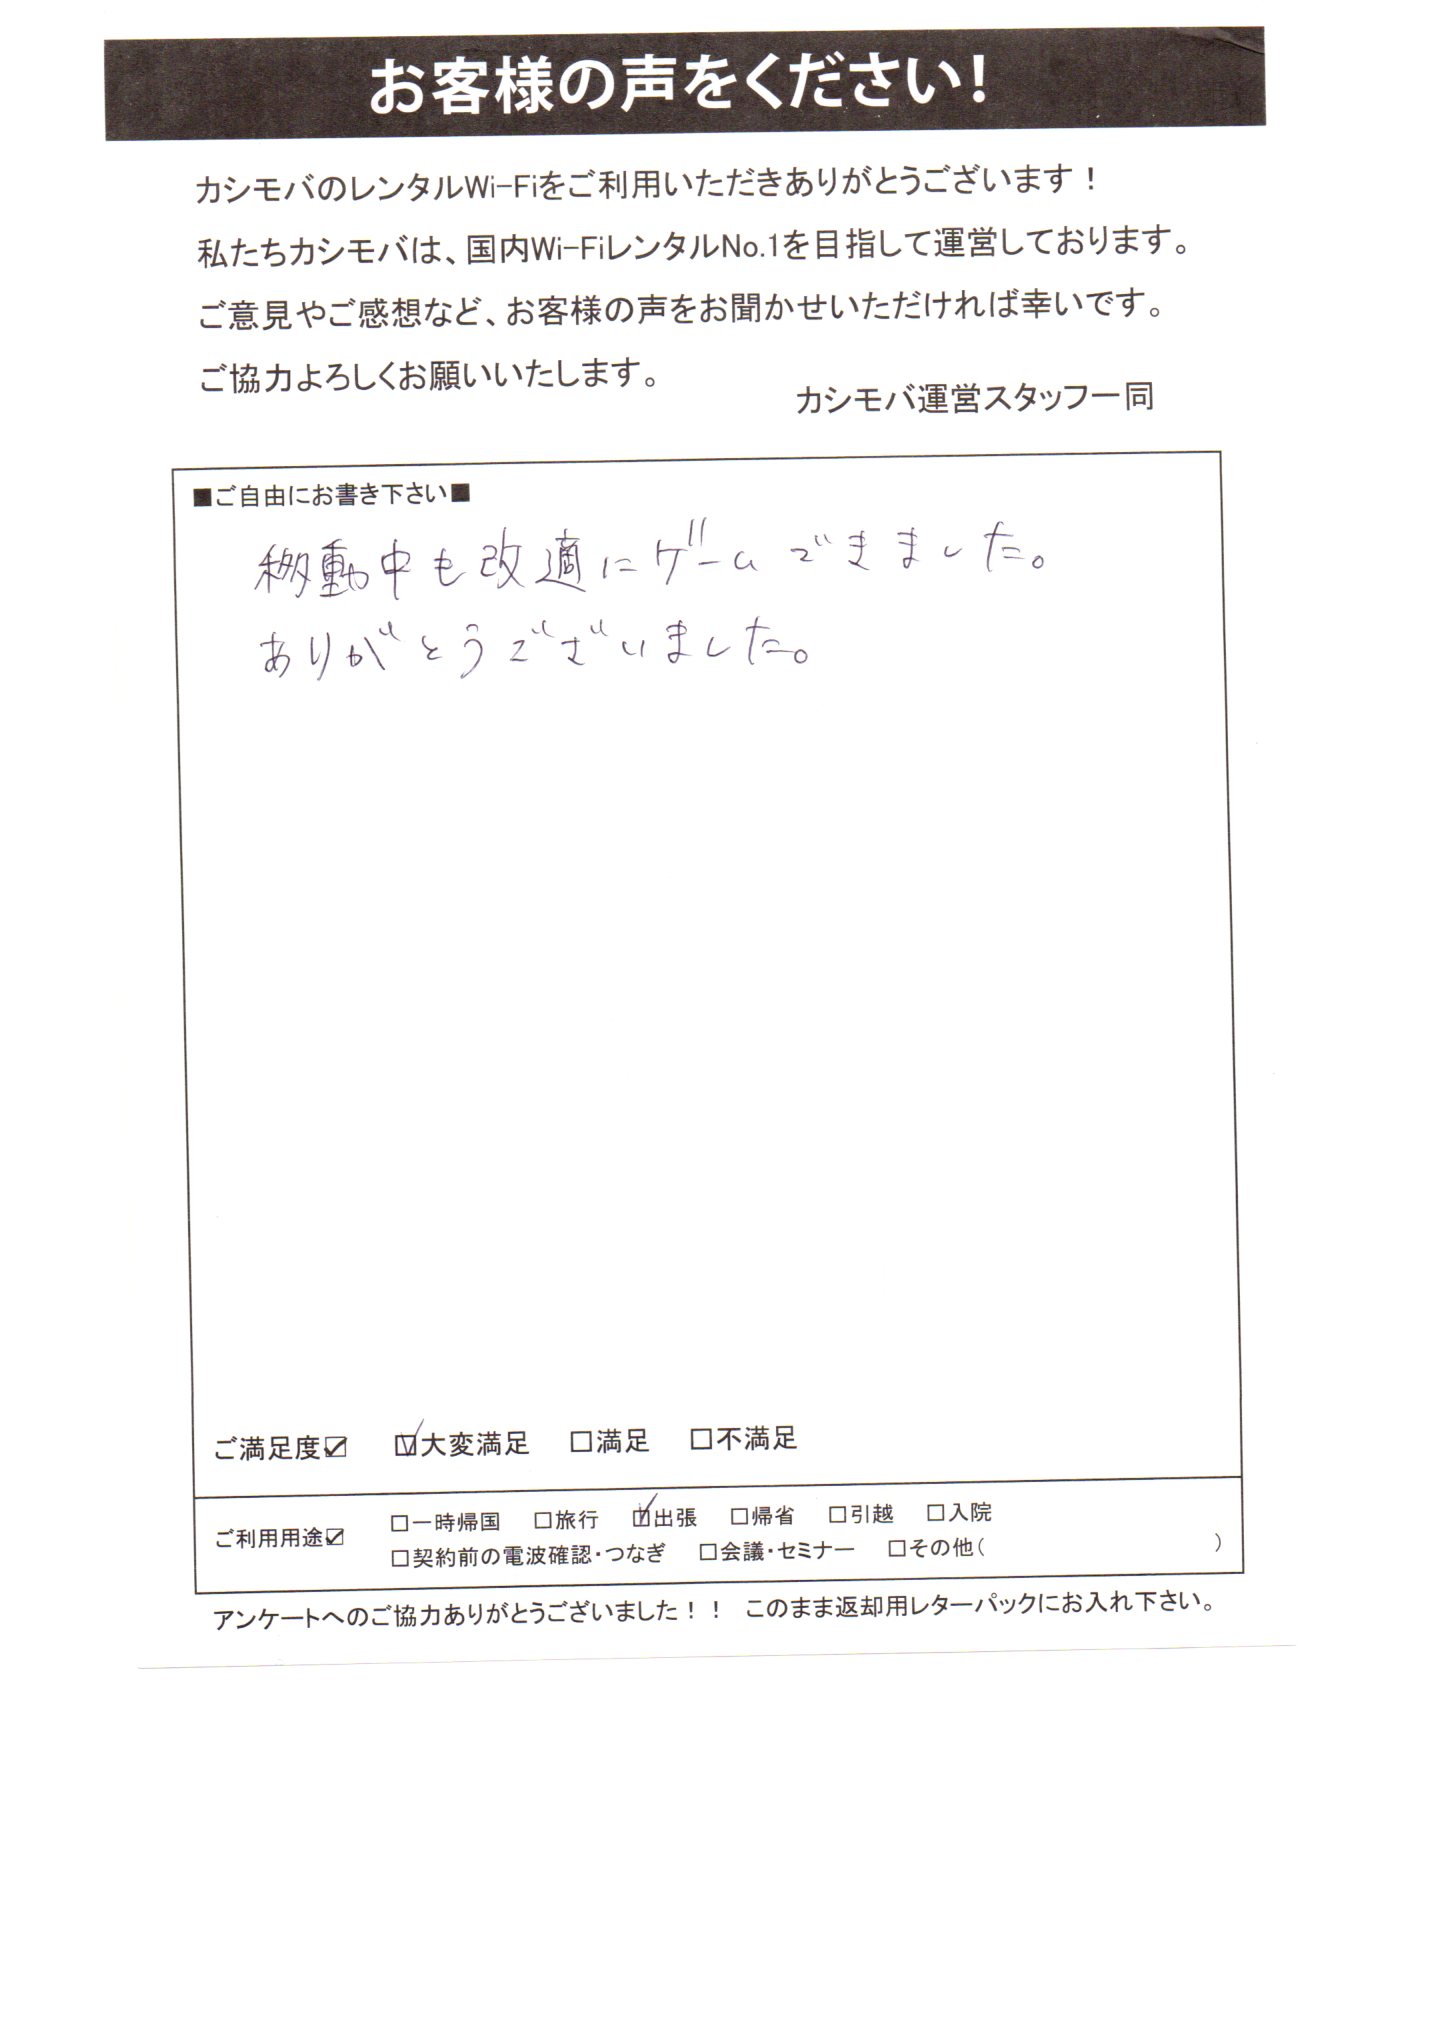 お客様の声をください!
カシモバのレンタルWi-Fiをご利用いただきありがとうございます!
私たちカシモバは、国内Wi-FiレンタルNo.1を目指して運営しております。
ご意見やご感想など、お客様の声をお聞かせいただければ幸いです。
ご協力よろしくお願いいたします。
カシモバ運営スタッフ一同
■ご自由にお書き下さい■
移動中も改適にゲームできました。
ありがとうございました。
ご満足度☑ ☑大変満足 □満足 □不満足
ご利用用途☑ □一時帰国 □旅行 ☑出張 □帰省 □引越 □入院
□契約前の電波確認・つなぎ □会議・セミナー □その他( )
アンケートへのご協力ありがとうございました!! このまま返却用レターパックにお入れ下さい。